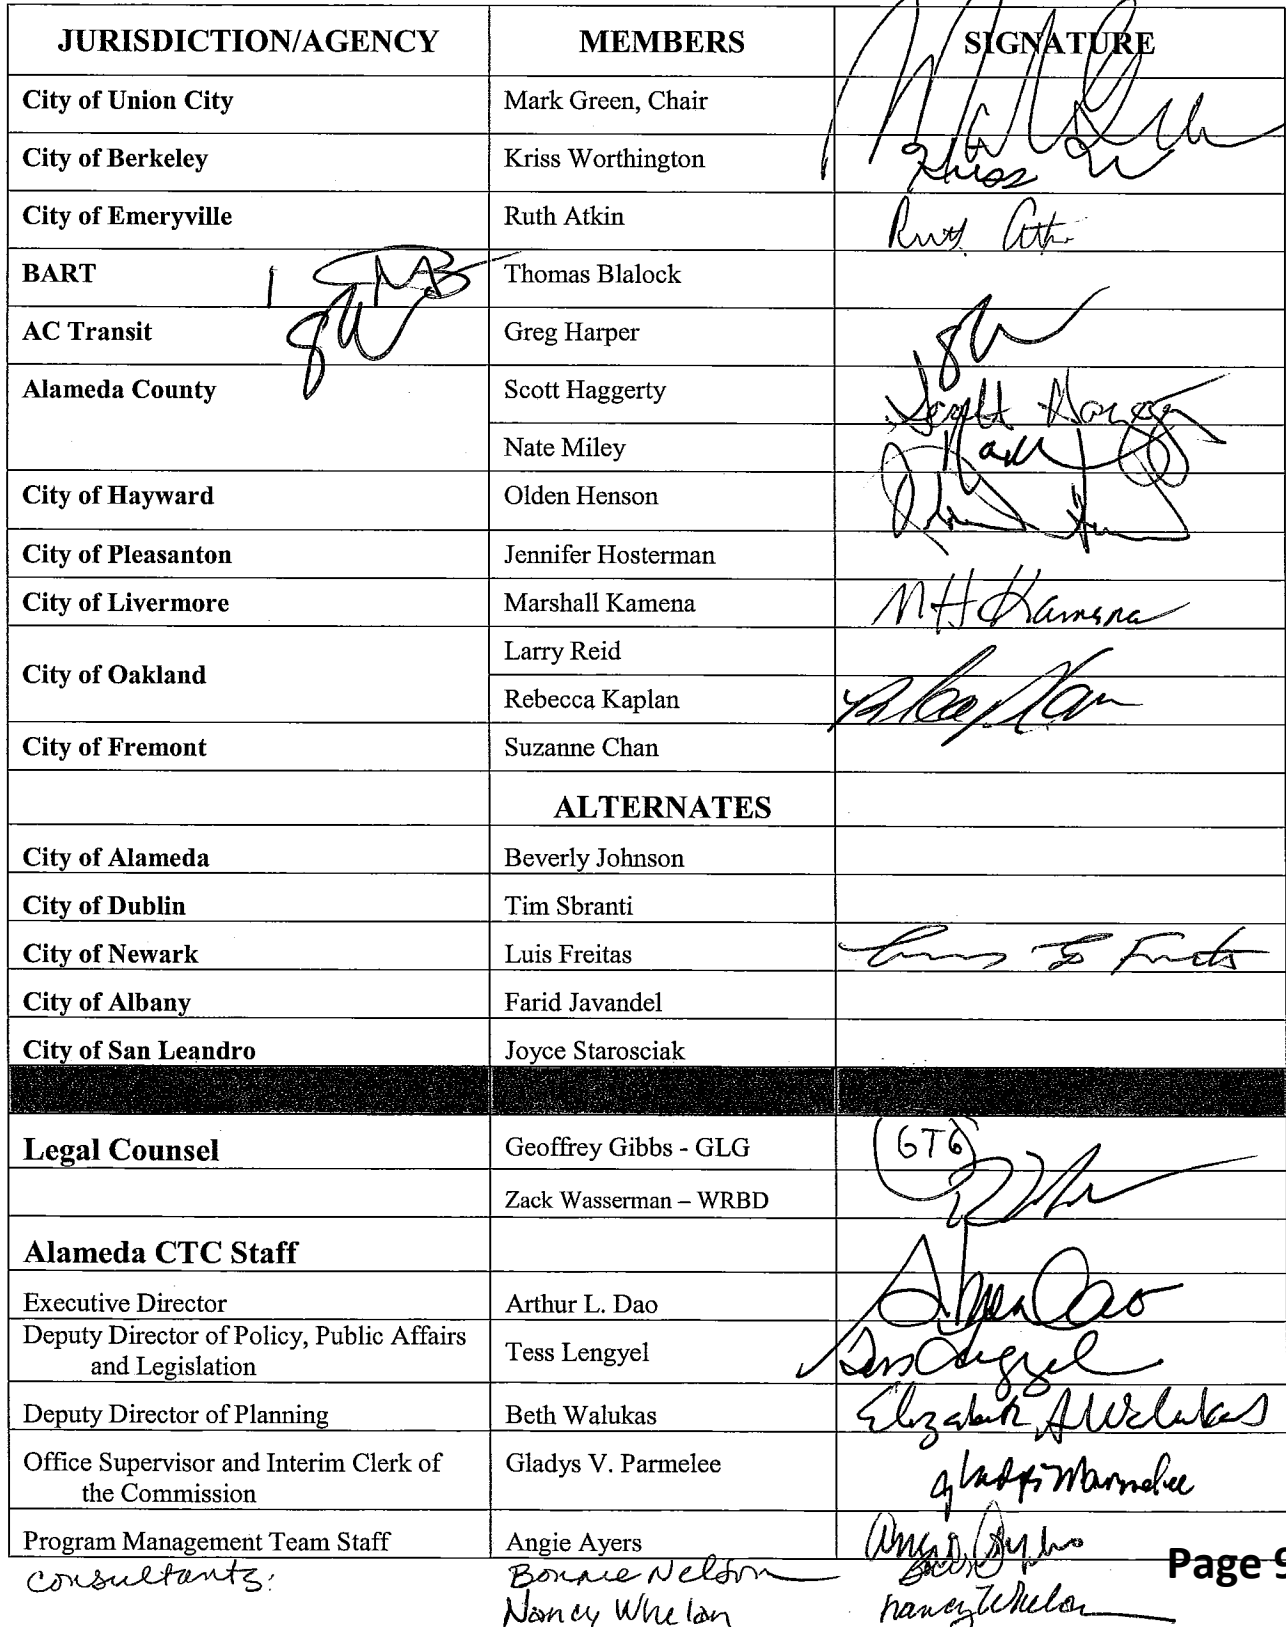 JURISDICTION/AGENCY MEMBERS SIGNATURE
City of Union City Mark Green, Chair
City of Berkeley Kriss Worthington Kriss W
City of Emeryville Ruth Atkin Ruth Atkin
BART Thomas Blalock
AC Transit Greg Harper gH
Alameda County Scott Haggerty Scott Haggerty
Nate Miley
City of Hayward Olden Henson
City of Pleasanton Jennifer Hosterman
City of Livermore Marshall Kamena MH Kamena
City of Oakland Larry Reid
Rebecca Kaplan
City of Fremont Suzanne Chan
ALTERNATES
City of Alameda Beverly Johnson
City of Dublin Tim Sbranti
City of Newark Luis Freitas
City of Albany Farid Javandel
City of San Leandro Joyce Starosciak
Legal Counsel Geoffrey Gibbs - GLG GTG
Zack Wasserman – WRBD
Alameda CTC Staff
Executive Director Arthur L. Dao Arthur Dao
Deputy Director of Policy, Public Affairs
and Legislation Tess Lengyel Tess Lengyel
Deputy Director of Planning Beth Walukas Elizabeth A Walukas
Office Supervisor and Interim Clerk of
the Commission Gladys V. Parmelee Gladys V Parmelee
Program Management Team Staff Angie Ayers Angie Ayers
consultants: Bonnie Nelson Page 9
Nancy Whelan Nancy Whelan